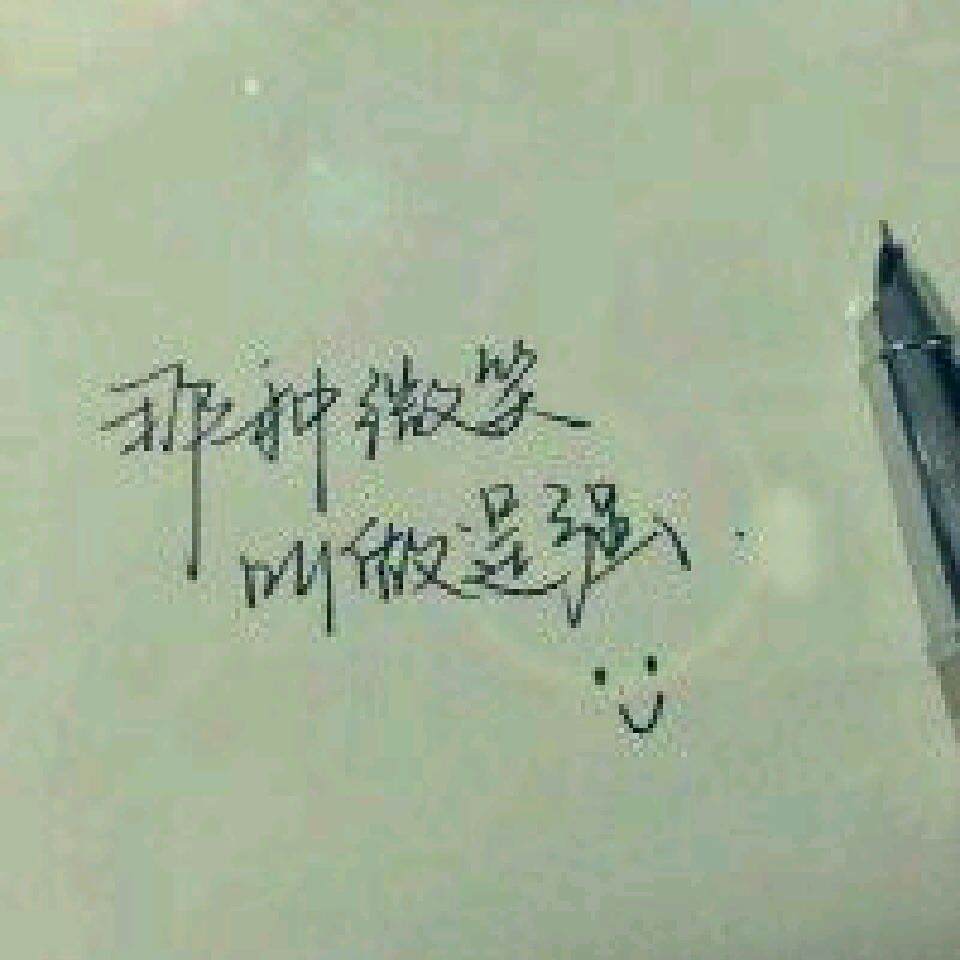 那种微笑
叫做逞强